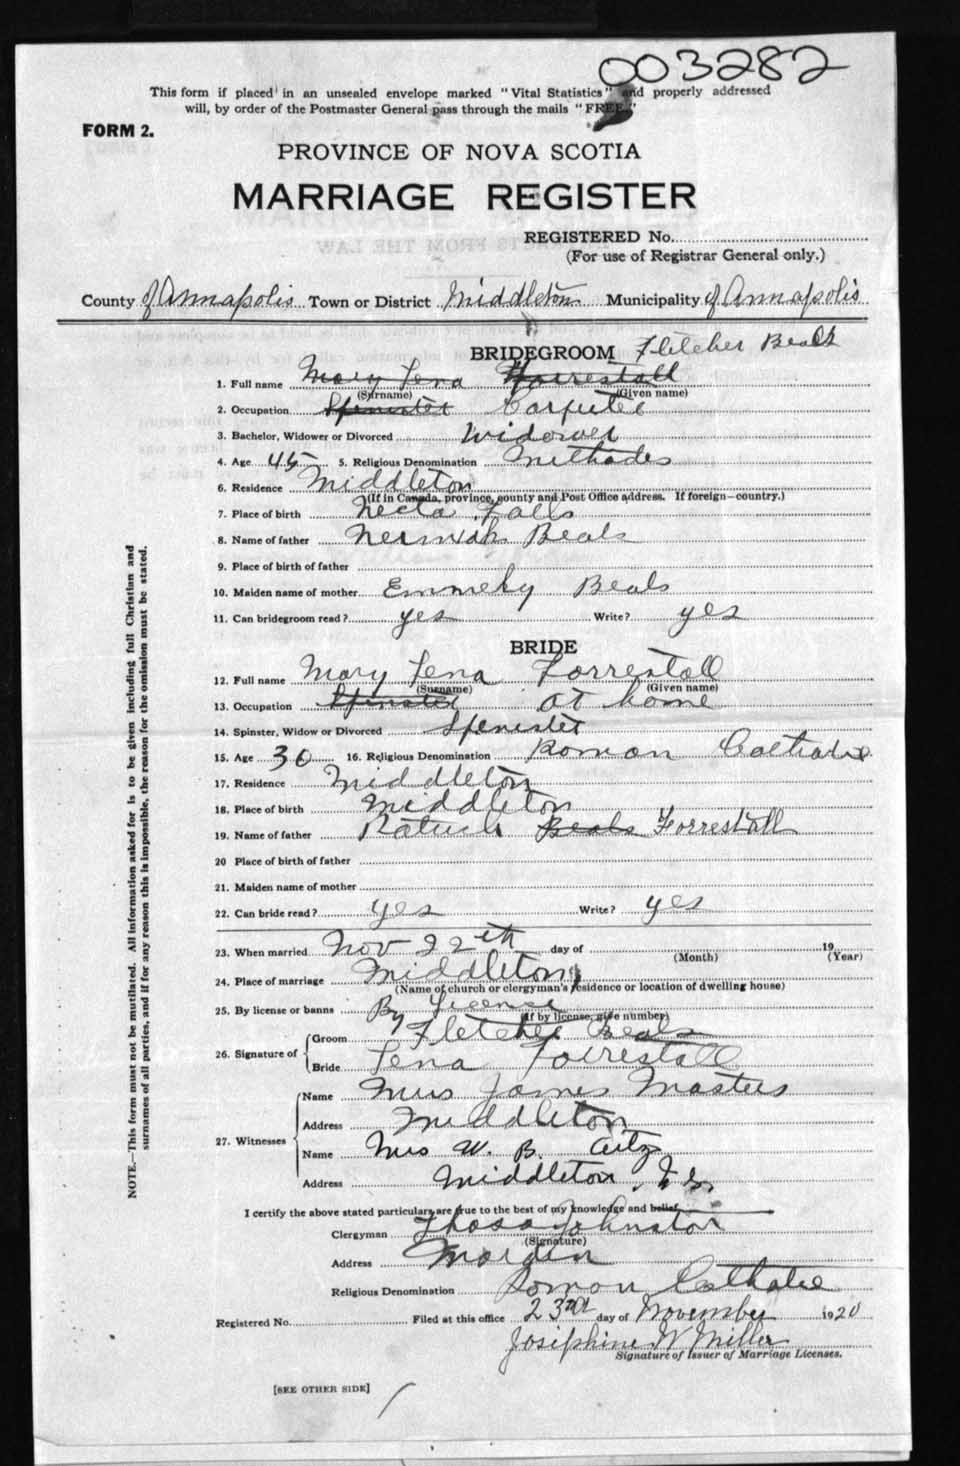 003282
This form if placed in an unsealed envelope marked "Vital Statistics" and properly addressed
will, by order of the Postmaster General pass through the mails "FREE."
FORM 2.
PROVINCE OF NOVA SCOTIA
MARRIAGE REGISTER
REGISTERED No.
(For use of Registrar General only.)
County of Annapolis Town or District Middleton Municipality of Annapolis
BRIDEGROOM Fletcher Beals
1. Full name Mary Lena Forrestall
(Surname) (Given name)
2. Occupation Spinster Carputee
3. Bachelor, Widower or Divorced Widower
4. Age 45 5. Religious Denomination Methodes
6. Residence Middleton
(If in Canada, province, county and Post Office address. If foreign—country.)
7. Place of birth Necta Falls
8. Name of father Beals
9. Place of birth of father
10. Maiden name of mother Emmely Beals
11. Can bridegroom read? yes Write? yes
BRIDE
12. Full name Mary Lena Forrestall
(Surname) (Given name)
13. Occupation Spinster at home
14. Spinster, Widow or Divorced Spenister
15. Age 30 16. Religious Denomination Roman Cathalic
17. Residence Middleton
18. Place of birth Middleton
19. Name of father Beals Forrestall
20 Place of birth of father
21. Maiden name of mother
22. Can bride read? yes Write? yes
23. When married Nov 22th day of 19
(Month) (Year)
24. Place of marriage Middleton
(Name of church or clergyman's residence or location of dwelling house)
25. By license or banns By Licence
(If by license, give number)
26. Signature of Groom Fletcher Beals
Bride Lena Forrestall
27. Witnesses Name Mrs James Masters
Address Middleton
Name Mrs W. B.
Address Middleton, N.S.
I certify the above stated particulars are true to the best of my knowledge and belief.
Clergyman Thos a Johnston
(Signature)
Address Morden
Religious Denomination Roman Cathalic
Registered No. Filed at this office 23rd day of November 1920
Josephine W Miller
Signature of Issuer of Marriage Licenses.
[SEE OTHER SIDE]
NOTE.—This form must not be mutilated. All information asked for is to be given including full Christian and
surnames of all parties, and if for any reason this is impossible, the reason for the omission must be stated.